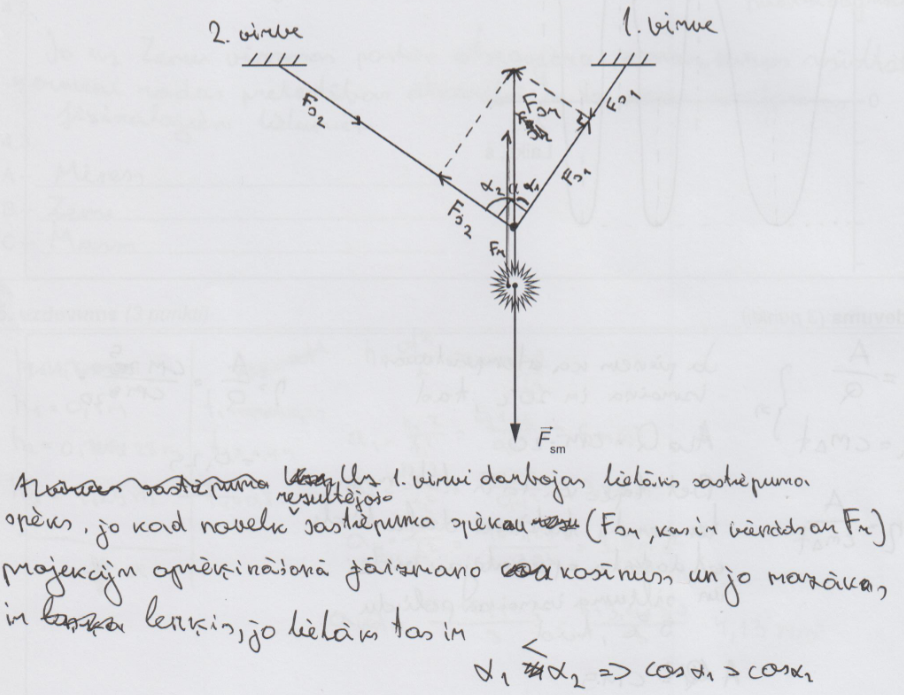 2. virve
1. virve
F₂
F₁
F₁
F₂
α₂ α₁
Fᵣ
F⃗sm
Uz 1. virvi darbojas lielāks sastiepuma
rezultējošo
spēks, jo kad novelk sastiepuma spēku (Fᵣ, kas ir vienāds ar Fᵣ)
projekcijn aprēķināšanā jāizmanto kosinuss un jo mazāks,
ir leņķis, jo lielāks tas ir
α₁ < α₂ => cosα₁ > cosα₂